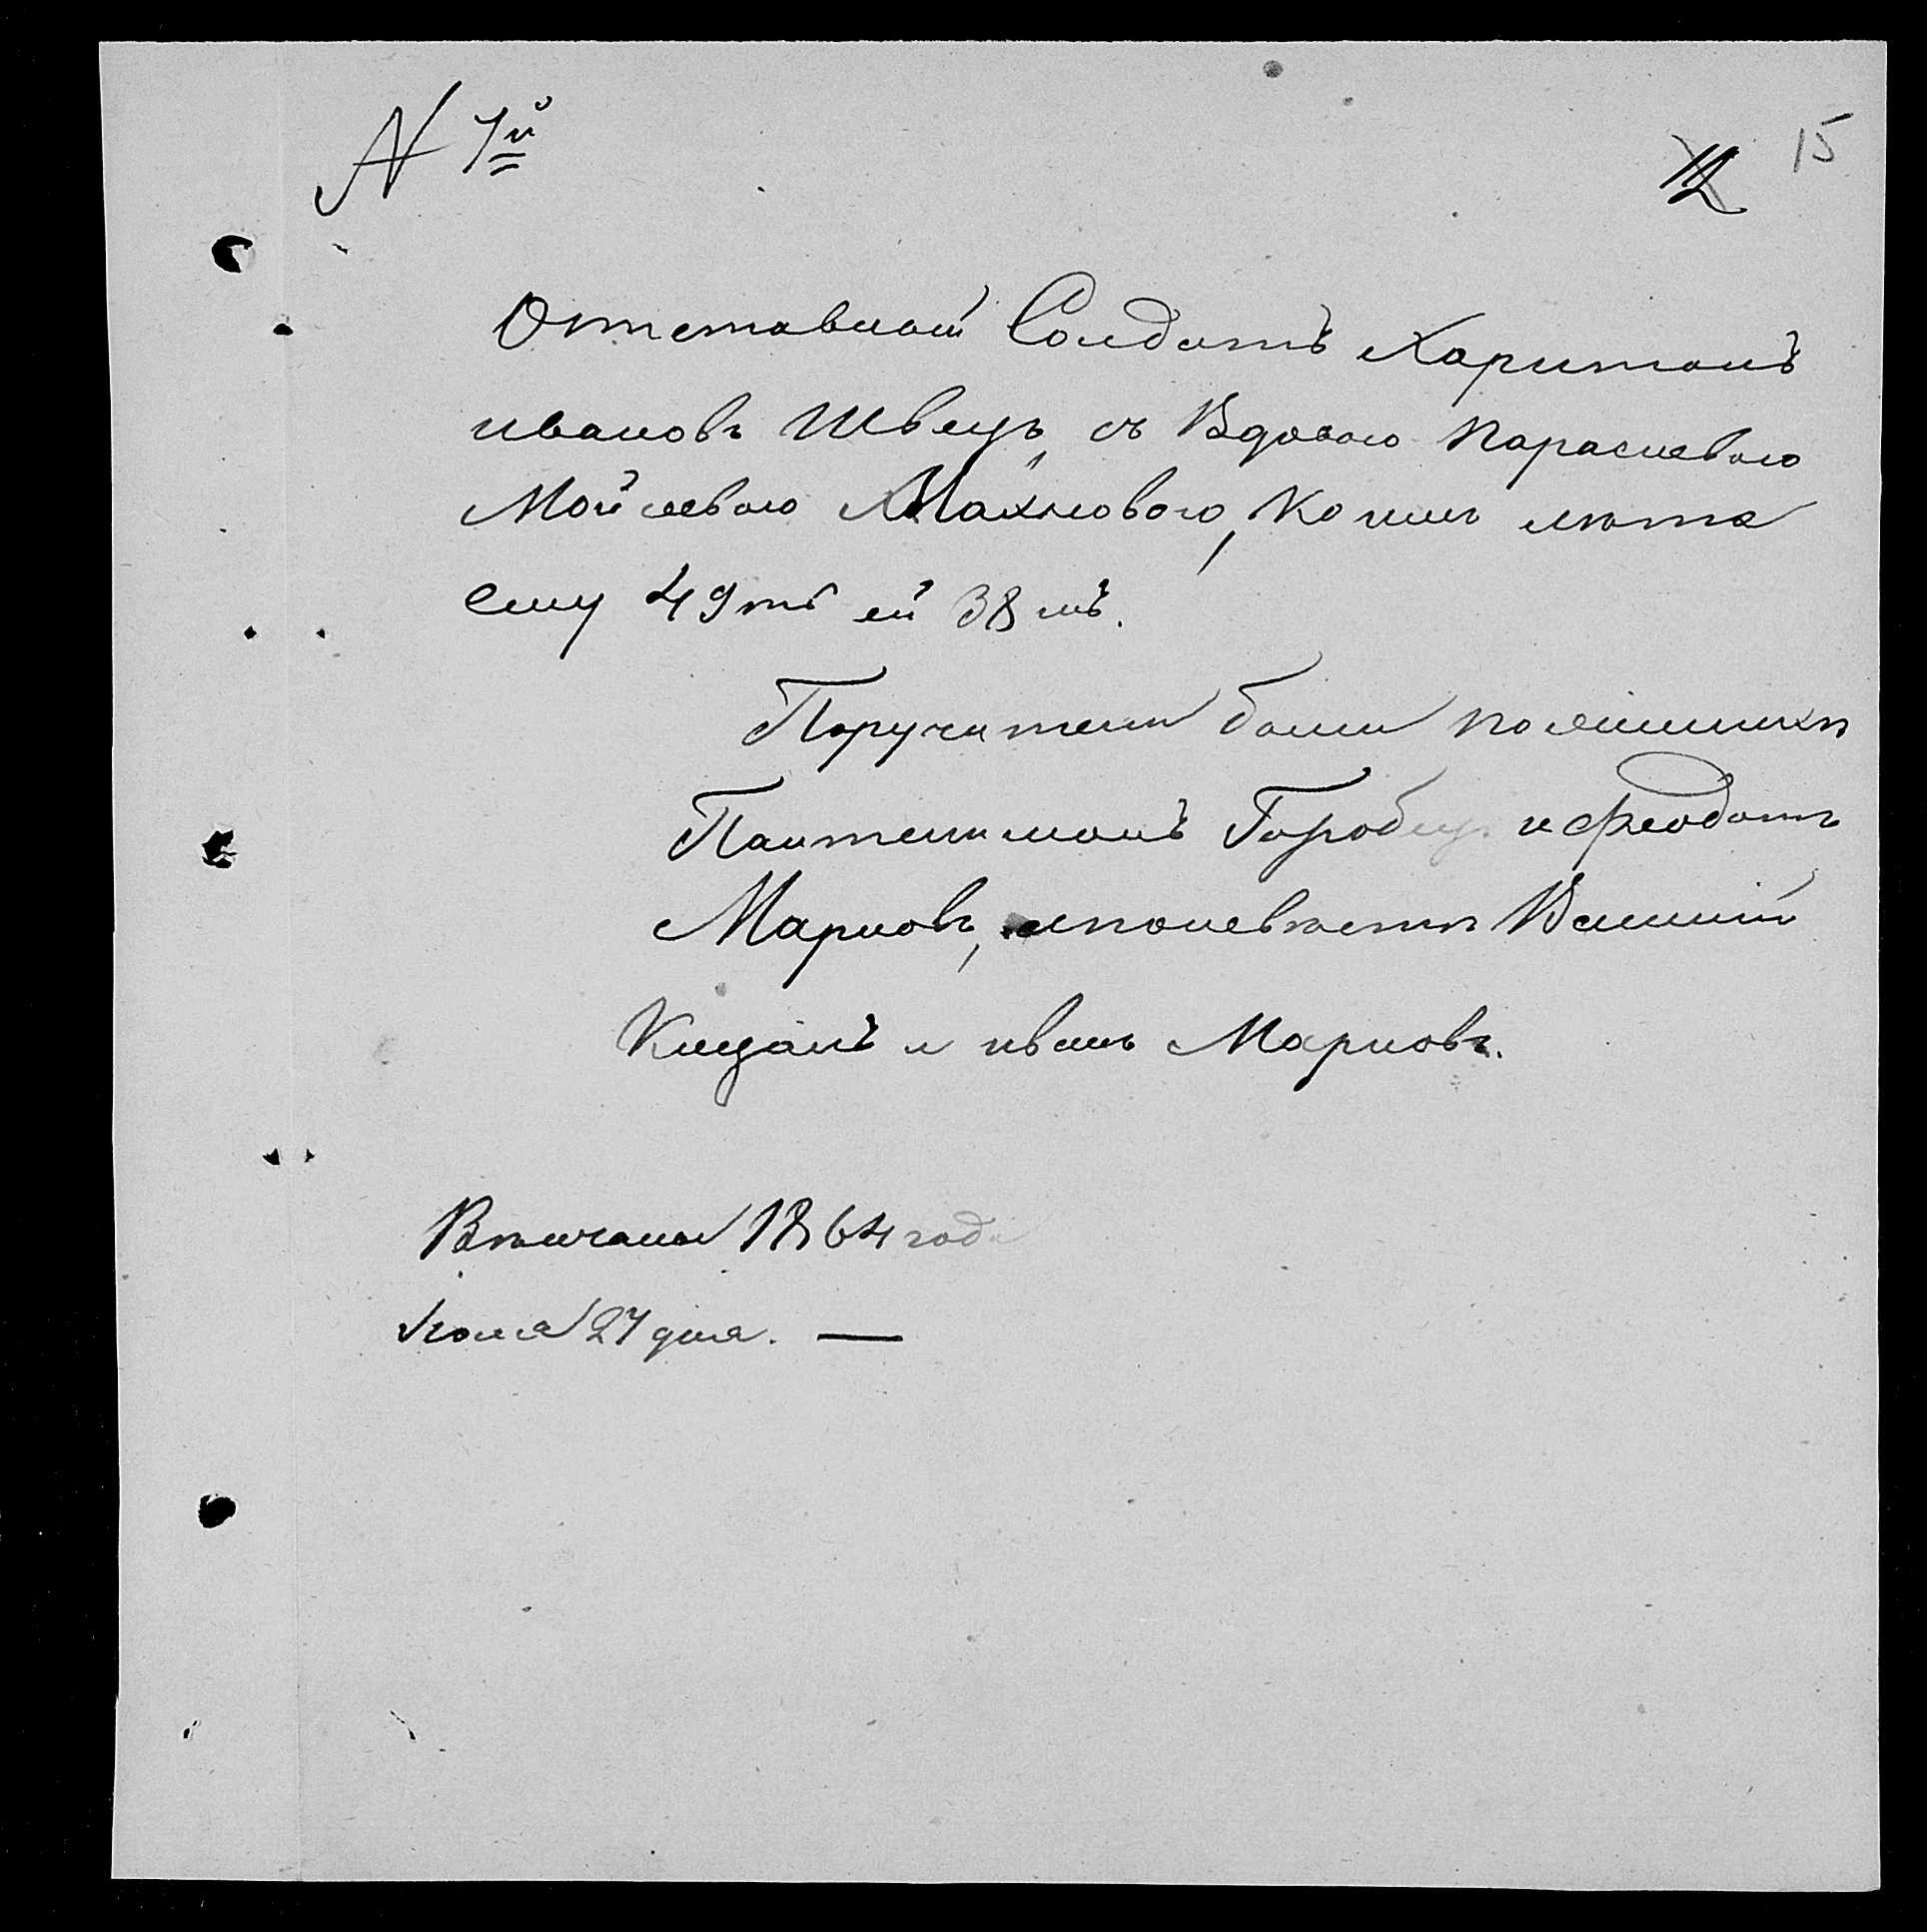 N 1й
12 15
Отставной Солдатъ Харитонъ
ивановъ Швецъ, съ Вдовою Параскевою
Мойсеевою Махновою, Коимъ лѣта
ему 49ть ей 38мъ.
Поручители были по женихѣ
Пантелимонъ Горобець и Феодотъ
Марковъ, а по невѣстѣ Василий
Кицанъ и иванъ Марковъ.
Вѣнчаны 1864 года
Июля 27 дня. —